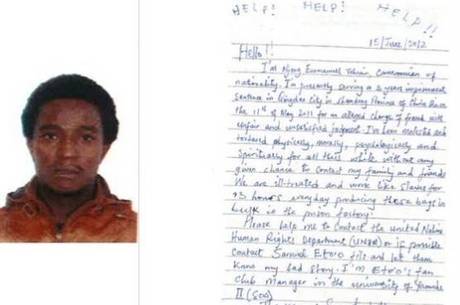 HELP! HELP! HELP!!
15/June/2012
Hello!!
I'm Njong Emmanuel Tohnain Cameroonian of
nationality. I'm presently serving a 3 years imprisonment
sentence in Qingdao City in Shandong Province of China since
the 11th of May 2011 for an alleged charge of fraud with
unfair and unsatisfied judgment. I've been molested and
tortured physically, morally, psychologically and
spiritually for all this while without any
given chance to contact my family and friends
We are ill-treated and work like slaves for
13 hours everyday producing these bags in
bulk in the prison factory.
Please help me to contact the united Nations
Human Rights Department (UNHR) or if possible
contact Samuel Eto'o fils and let them
know my bad story. I'm Eto'o's fan
club manager in the university of Yaounde
II (Soa)